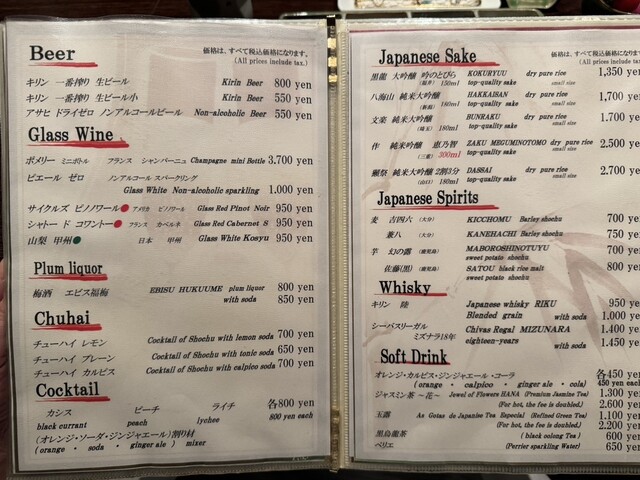 Beer
価格は、すべて税込価格になります。
(All prices include tax.)
キリン 一番搾り 生ビール Kirin Beer 800 yen
キリン 一番搾り 生ビール小 Kirin Beer 550 yen
アサヒ ドライゼロ ノンアルコールビール Non-alcoholic Beer 550 yen
Glass Wine
ポメリー ミニボトル フランス シャンパーニュ Champagne mini Bottle 3.700 yen
ピエール ゼロ ノンアルコール スパークリング
Glass White Non-alcoholic sparkling 1.000 yen
サイクルズ ピノノワール アメリカ ピノノワール Glass Red Pinot Noir 950 yen
シャトー ド コワントー フランス カベルネ Glass Red Cabernet S 950 yen
山梨 甲州 日本 甲州 Glass White Kosyu 950 yen
Plum liquor
梅酒 エビス福梅 EBISU HUKUUME plum liquor 800 yen
with soda 850 yen
Chuhai
チューハイ レモン Cocktail of Shochu with lemon soda 700 yen
チューハイ プレーン Cocktail of Shochu with tonic soda 650 yen
チューハイ カルピス Cocktail of Shochu with calpico soda 700 yen
Cocktail
カシス ピーチ ライチ 各800 yen
black currant peach lychee 800 yen each
(オレンジ・ソーダ・ジンジャエール)割り材
(orange ・ soda ・ ginger ale ) mixer
Japanese Sake
価格は、すべて税込価格になります。
(All prices include tax.)
黒龍 大吟醸 吟のとびら KOKURYUU dry pure rice 1,350 ye
(福井) 150ml top-quality sake small size
八海山 純米大吟醸 HAKKAISAN dry pure rice 1,700 ye
(新潟) 180ml top-quality sake small size
文楽 純米大吟醸 BUNRAKU dry pure rice 1,700 ye
(埼玉) 180ml top-quality sake small size
作 純米大吟醸 恵乃智 ZAKU MEGUMINOTOMO dry pure rice 2,500 ye
(三重) 300ml top-quality sake small size
獺祭 純米大吟醸 2割3分 DASSAI dry pure rice 2,700 ye
(山口) 180ml top-quality sake small size
Japanese Spirits
麦 吉四六 (大分) KICCHOMU Barley shochu 700 ye
兼八 (大分) KANEHACHI Barley shochu 750 ye
芋 幻の露 (鹿児島) MABOROSHINOTUYU 700 ye
sweet potato shochu
佐藤(黒) (鹿児島) SATOU black rice malt 800 ye
sweet potato shochu
Whisky
キリン 陸 Japanese whisky RIKU 950 ye
Blended grain with soda 1.000 ye
シーバスリーガル Chivas Regal MIZUNARA 1.400 ye
ミズナラ18年 eighteen-years with soda 1.450 ye
Soft Drink
オレンジ・カルピス・ジンジャエール・コーラ 各450 yen
(orange ・ calpico ・ ginger ale ・ cola) 450 yen each
ジャスミン茶 ～花～ Jewel of Flowers HANA (Premium Jasmine Tea) 1.300 ye
(For hot, the fee is doubled.) 2.600 ye
玉露 As Gotas de Japanese Tea Especial (Refined Green Tea) 1,100 ye
(For hot, the fee is doubled.) 2.200 ye
黒烏龍茶 ( black oolong Tea) 600 ye
ペリエ (Perrier sparkling Water) 650 ye